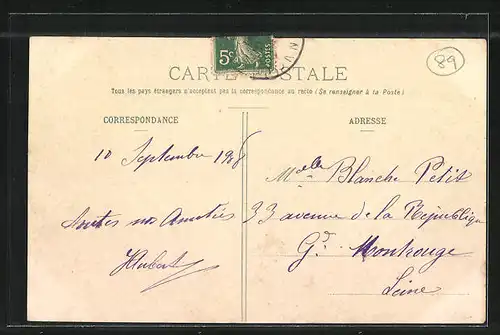 5c
POSTES
89
CARTE POSTALE
Tous les pays étrangers n'acceptent pas la correspondance au recto (Se renseigner à la Poste)
CORRESPONDANCE
ADRESSE
10 Septembre 1908
Toutes nos Amitiés
Hubert
Melle Blanche Petit
33 avenue de la République
Gd Montrouge
Seine